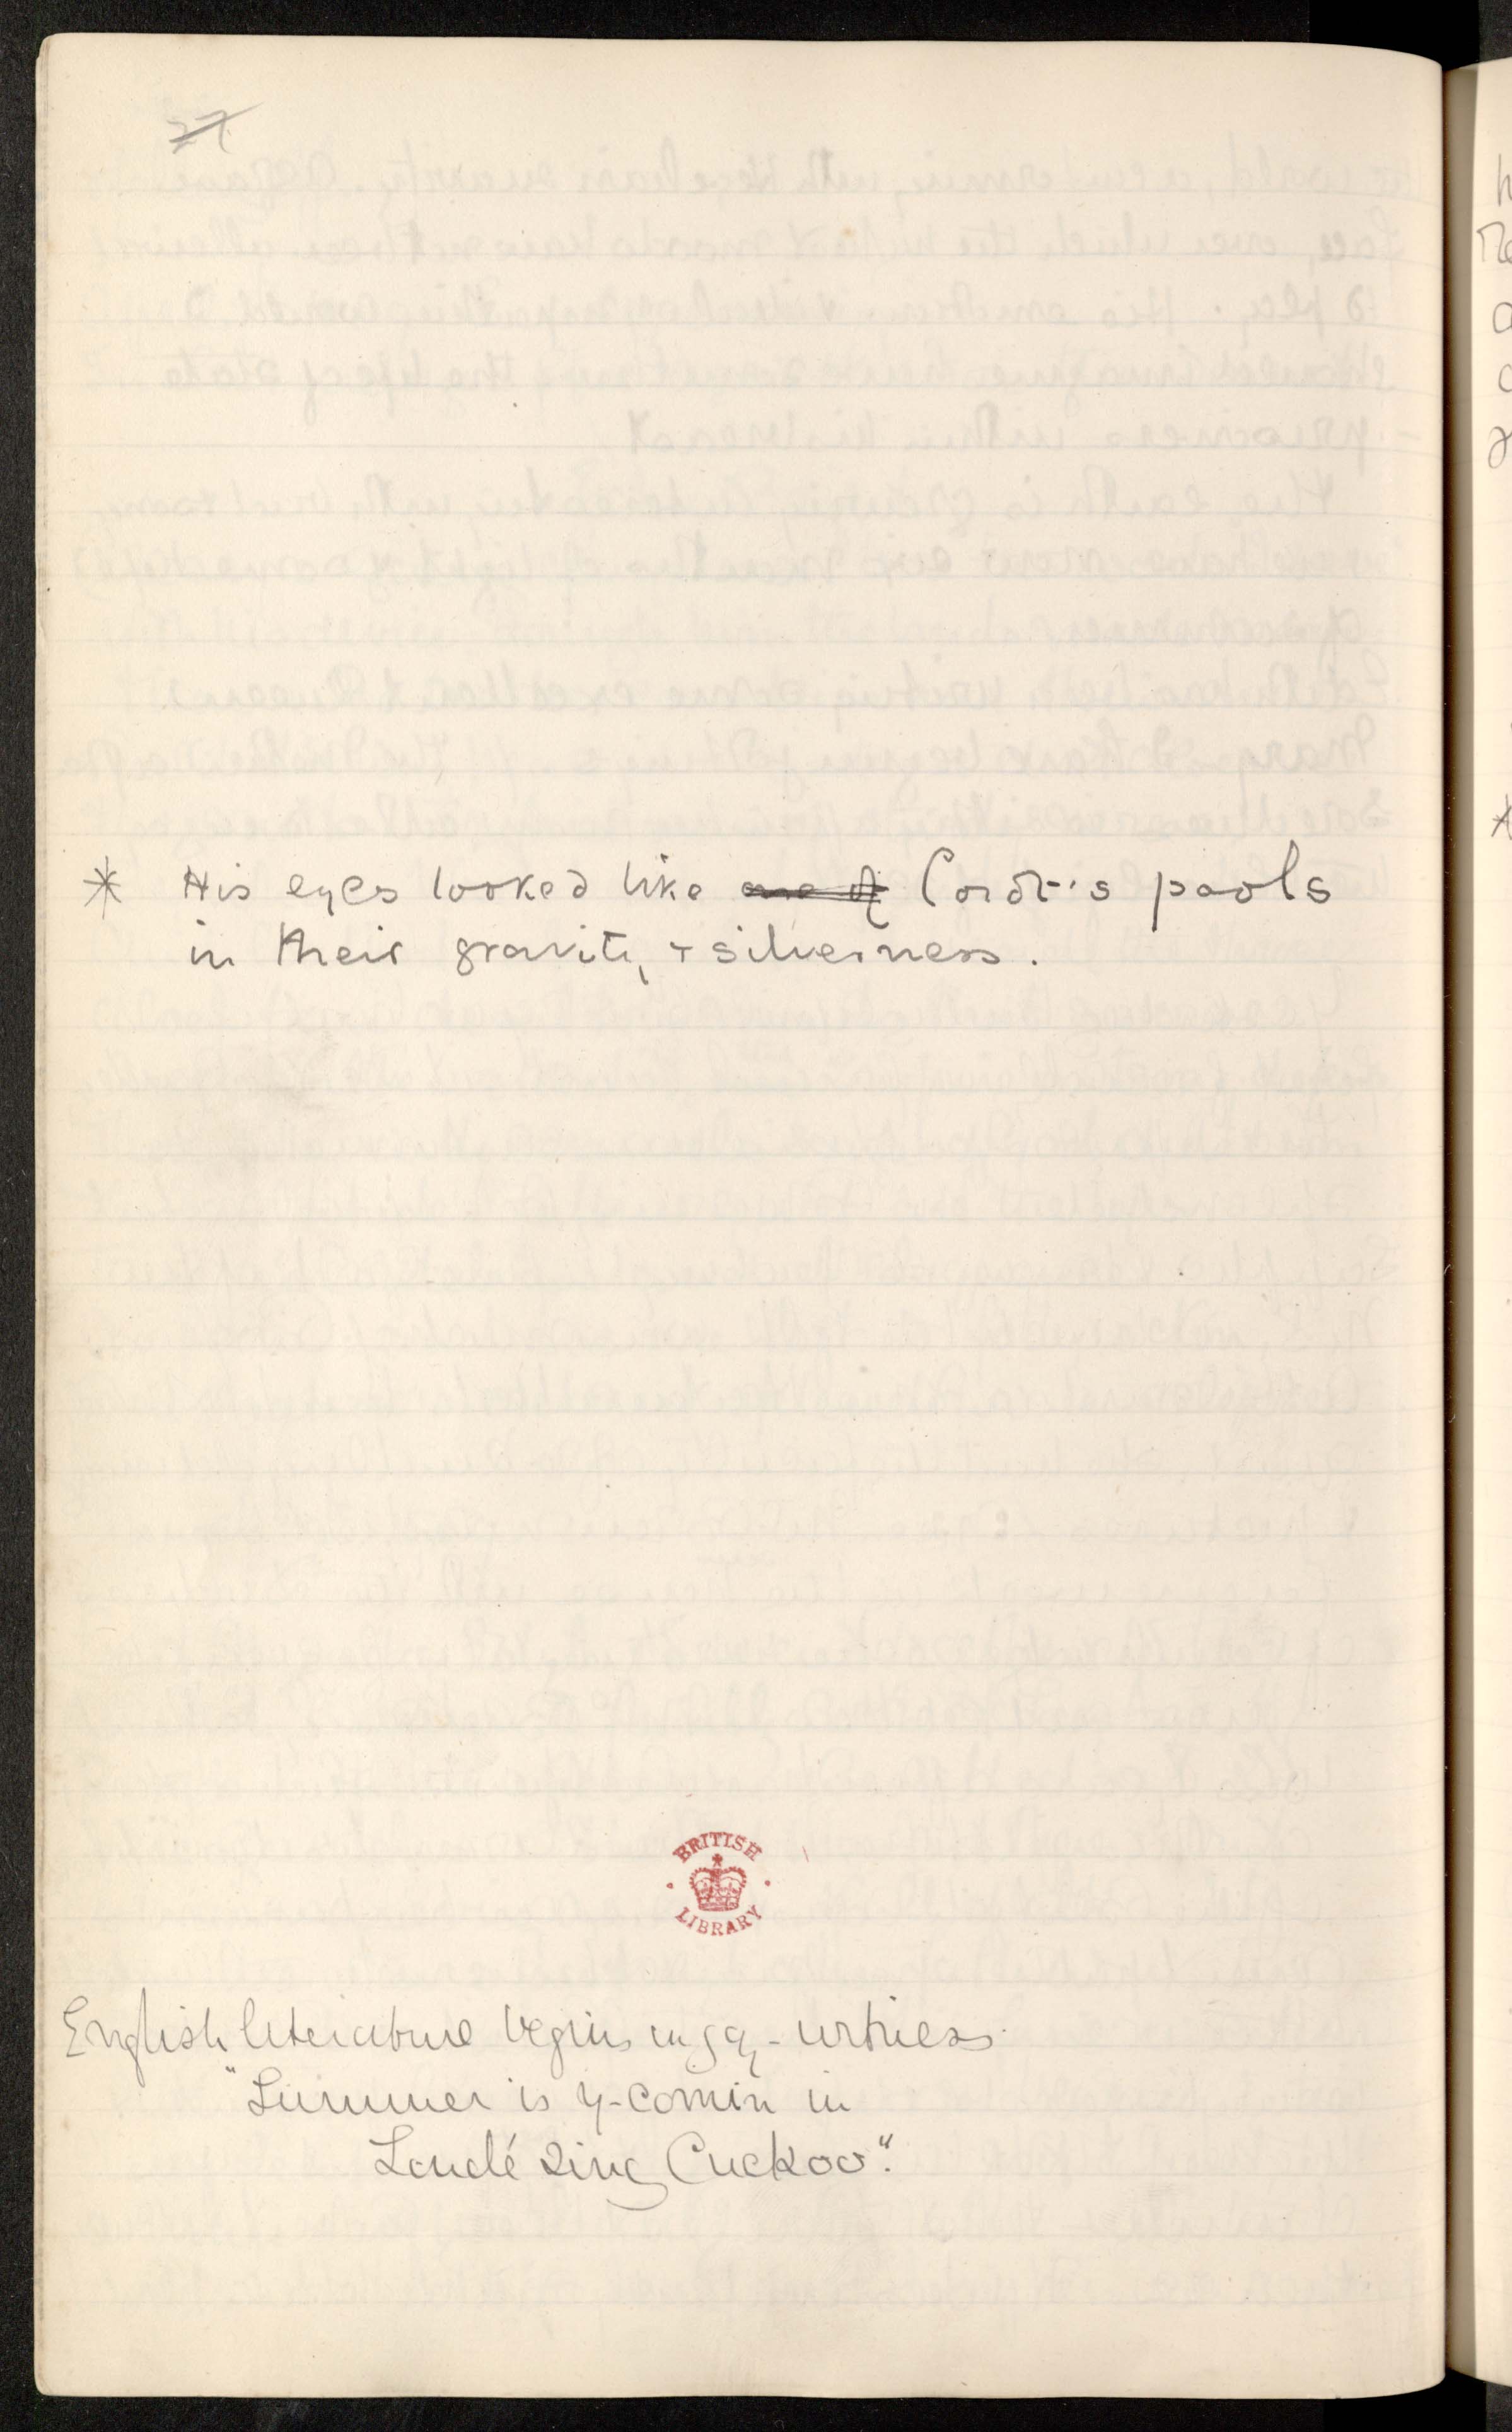 27
* His eyes looked like one of Corot's pools
in their gravity + silverness.
BRITISH
LIBRARY
English literature begins in gay-
"Summer is y-comin in
Loudé sing Cuckoo".